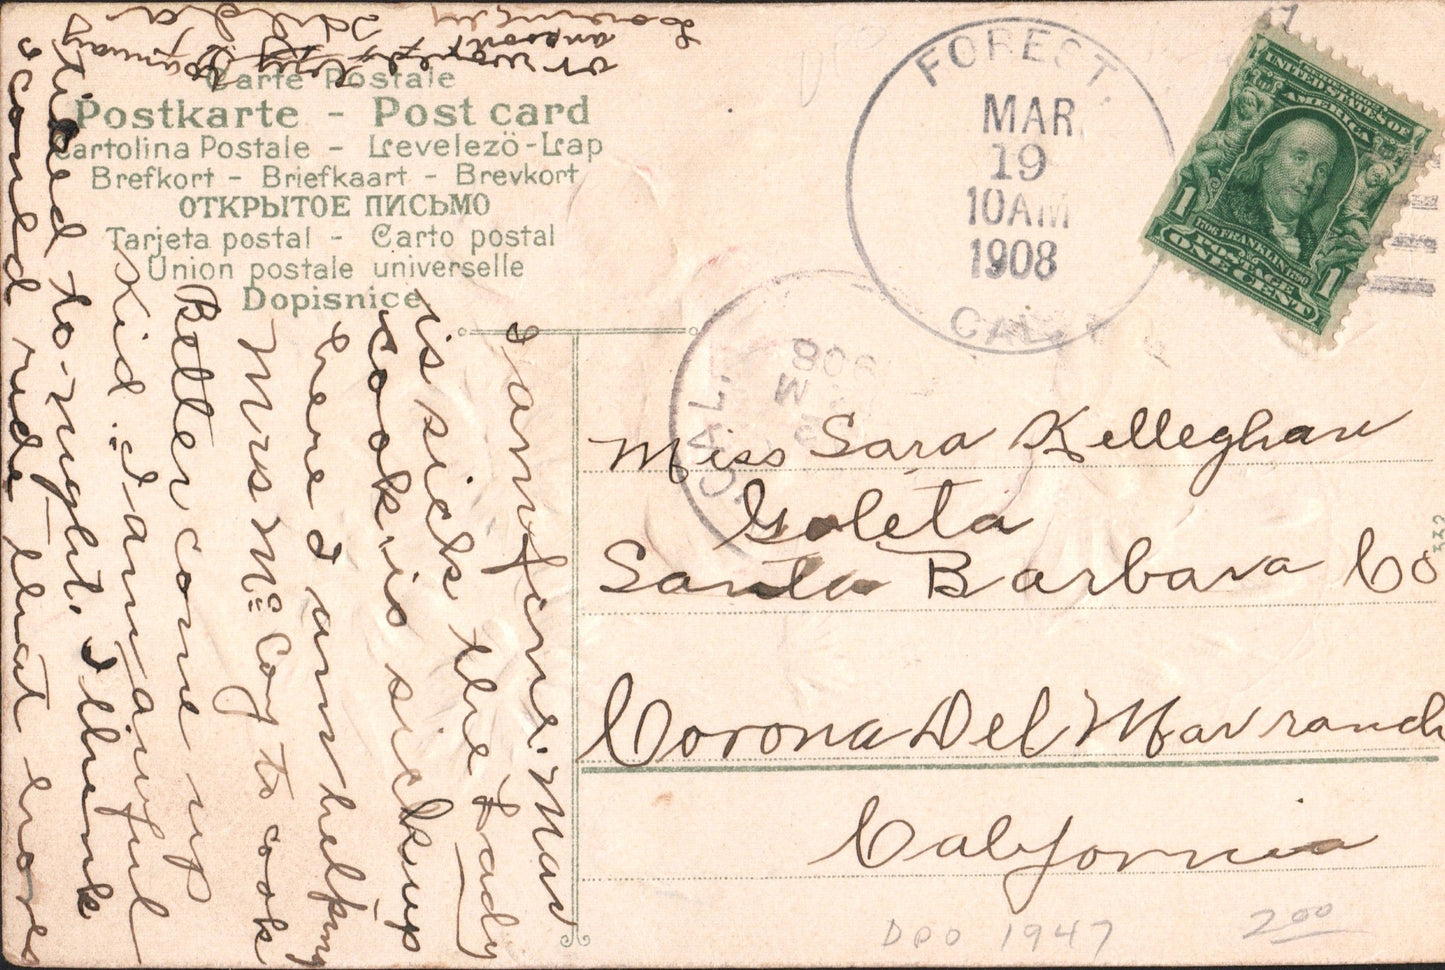 Carte Postale
Postkarte - Post card
Cartolina Postale - Levelezö-Lap
Brefkort - Briefkaart - Brevkort
ОТКРЫТОЕ ПИСЬМО
Tarjeta postal - Carto postal
Union postale universelle
Dopisnice
FOREST,
MAR
19
10AM
1908
CAL.
UNITED STATES OF
AMERICA
1706 FRANKLIN 1790
POSTAGE
1 ONE CENT 1
CAL.
908
Miss Sara Kelleghan
Goleta
Santa Barbara Co
Corona Del Mar ranch
California
332
DPO 1947
2.00
I am fine. Maw
is sick the Lady
cook is sick up
here I am helping
Mrs Mc Coy to cook
Better come up
Kid. I am awful
tired to-night. I think
I could ride that